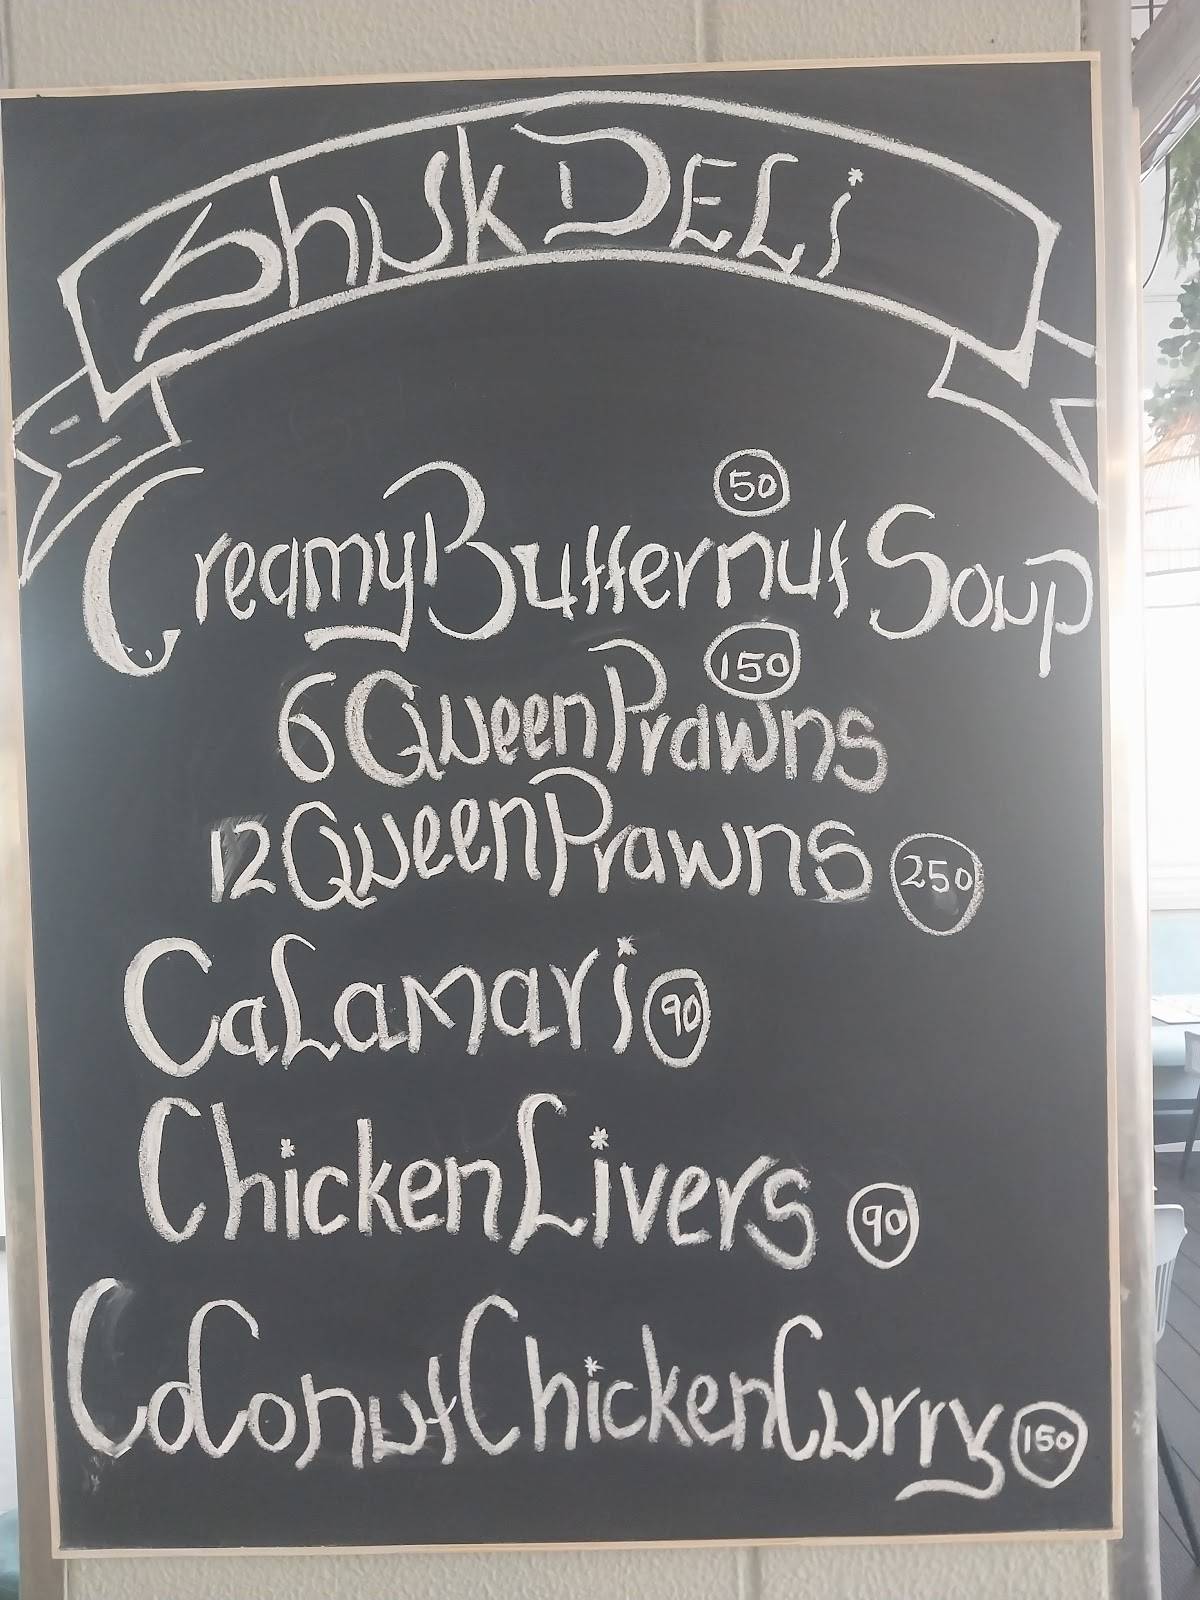 Shuk DELi
50
Creamy Butternut Soup
150
6 Queen Prawns
12 Queen Prawns 250
CaLamari 90
Chicken Livers 90
CoConut Chicken Curry 150